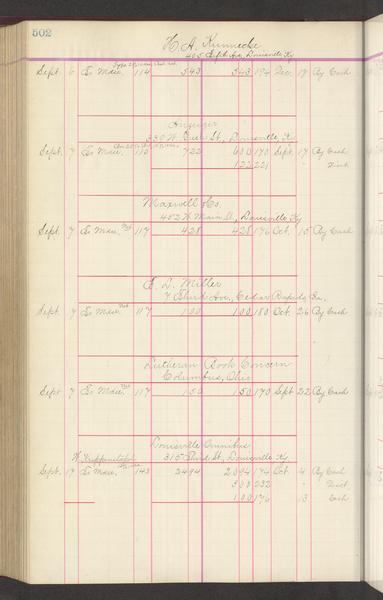 502
H. A. Kunnecke
405 Fifth Ave, Louisville, Ky
Sept. 6 To Mdse. 114 543 543 174 Dec. 17 By Cash
Anzeiger
330 W. Green St., Louisville, Ky
Sept. 7 To Mdse. 115 722 600 170 Sept. 17 By Cash
122 221 " Disct
Maxwell & Co.
452 W. Main St., Louisville, Ky
Sept. 7 To Mdse. Net 117 428 428 176 Oct. 15 By Cash
E. L. Miller
7 Third Ave., Cedar Rapids, Ia.
Sept. 7 To Mdse. Net 117 100 100 180 Oct. 26 By Cash
Lutheran Book Concern
Columbus, Ohio
Sept. 7 To Mdse. Net 117 150 150 170 Sept 22 By Cash
Louisville Omnibus
315 Third St., Louisville, Ky
Sept. 17 To Mdse. 143 2494 2094 174 Oct. 4 By Cash
300 232 " Disct
100 176 13 Cash